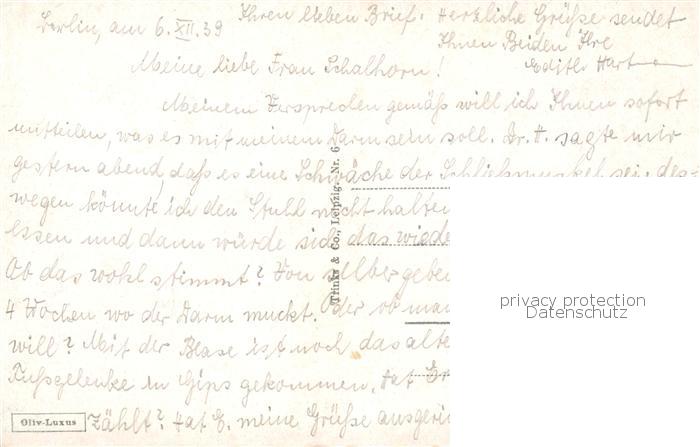 Berlin, am 6. XII. 39
Ihren lieben Brief. Herzliche Grüße sendet
Ihnen Beiden Ihre
Edith Hart
Meine liebe Frau Schalhorn!
Meinem Versprechen gemäß will ich Ihnen sofort
mitteilen, was es mit meinem Darm sein soll. Dr. H. sagte mir
gestern abend, daß es eine Schwäche der Schließmuskel sei, des=
wegen könnte ich den Stuhl nicht halten
essen und dann würde sich das wiede
Ob das wohl stimmt? Von selber geben
4 Wochen wo der Darm muckt. Oder ob man
will? Mit der Blase ist noch das alte
Fußgelenke in Gips gekommen. Hat Er
zählt? Hat E. meine Grüße ausgeri
Trinks & Co., Leipzig. Nr. 6
Oliv-Luxus
privacy protection
Datenschutz